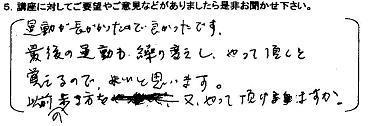 5. 講座に対してご要望やご意見などがありましたら是非お聞かせ下さい。
運動が長かったので良かったです。
最後の運動も繰り返し、やって頂くと
覚えるので、良いと思います。
以前の歩き方を 又、やって頂けますか。